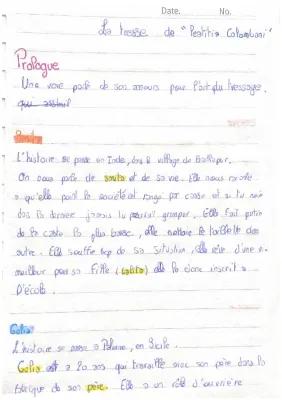 Date. No.
La tresse de "Leatitia Colombani"
Prologue
Une voix parle de son amours pour l'art du tressage.
L'histoire se passe en Inde, dans le village de Badlapur.
On nous parle de smita et de sa vie. Elle nous raconte
qu'elle point la société est rangé par caste et si tu nais
dans la dernière jamais tu pourrait grimper, Elle fait partie
de la caste la plus basse, elle nettoie les toilette des
autre. Elle souffre trop de sa situation, elle rêve d'une vie
meilleur pour sa fille (Lalita) elle la donc inscrit a
l'école.
Giulia
L'histoire se passe a Palerme, en Sicile.
Giulia est a 20 ans qui travaille avec son père dans la
fabrique de son père. Elle a un rôle d'ouvrière